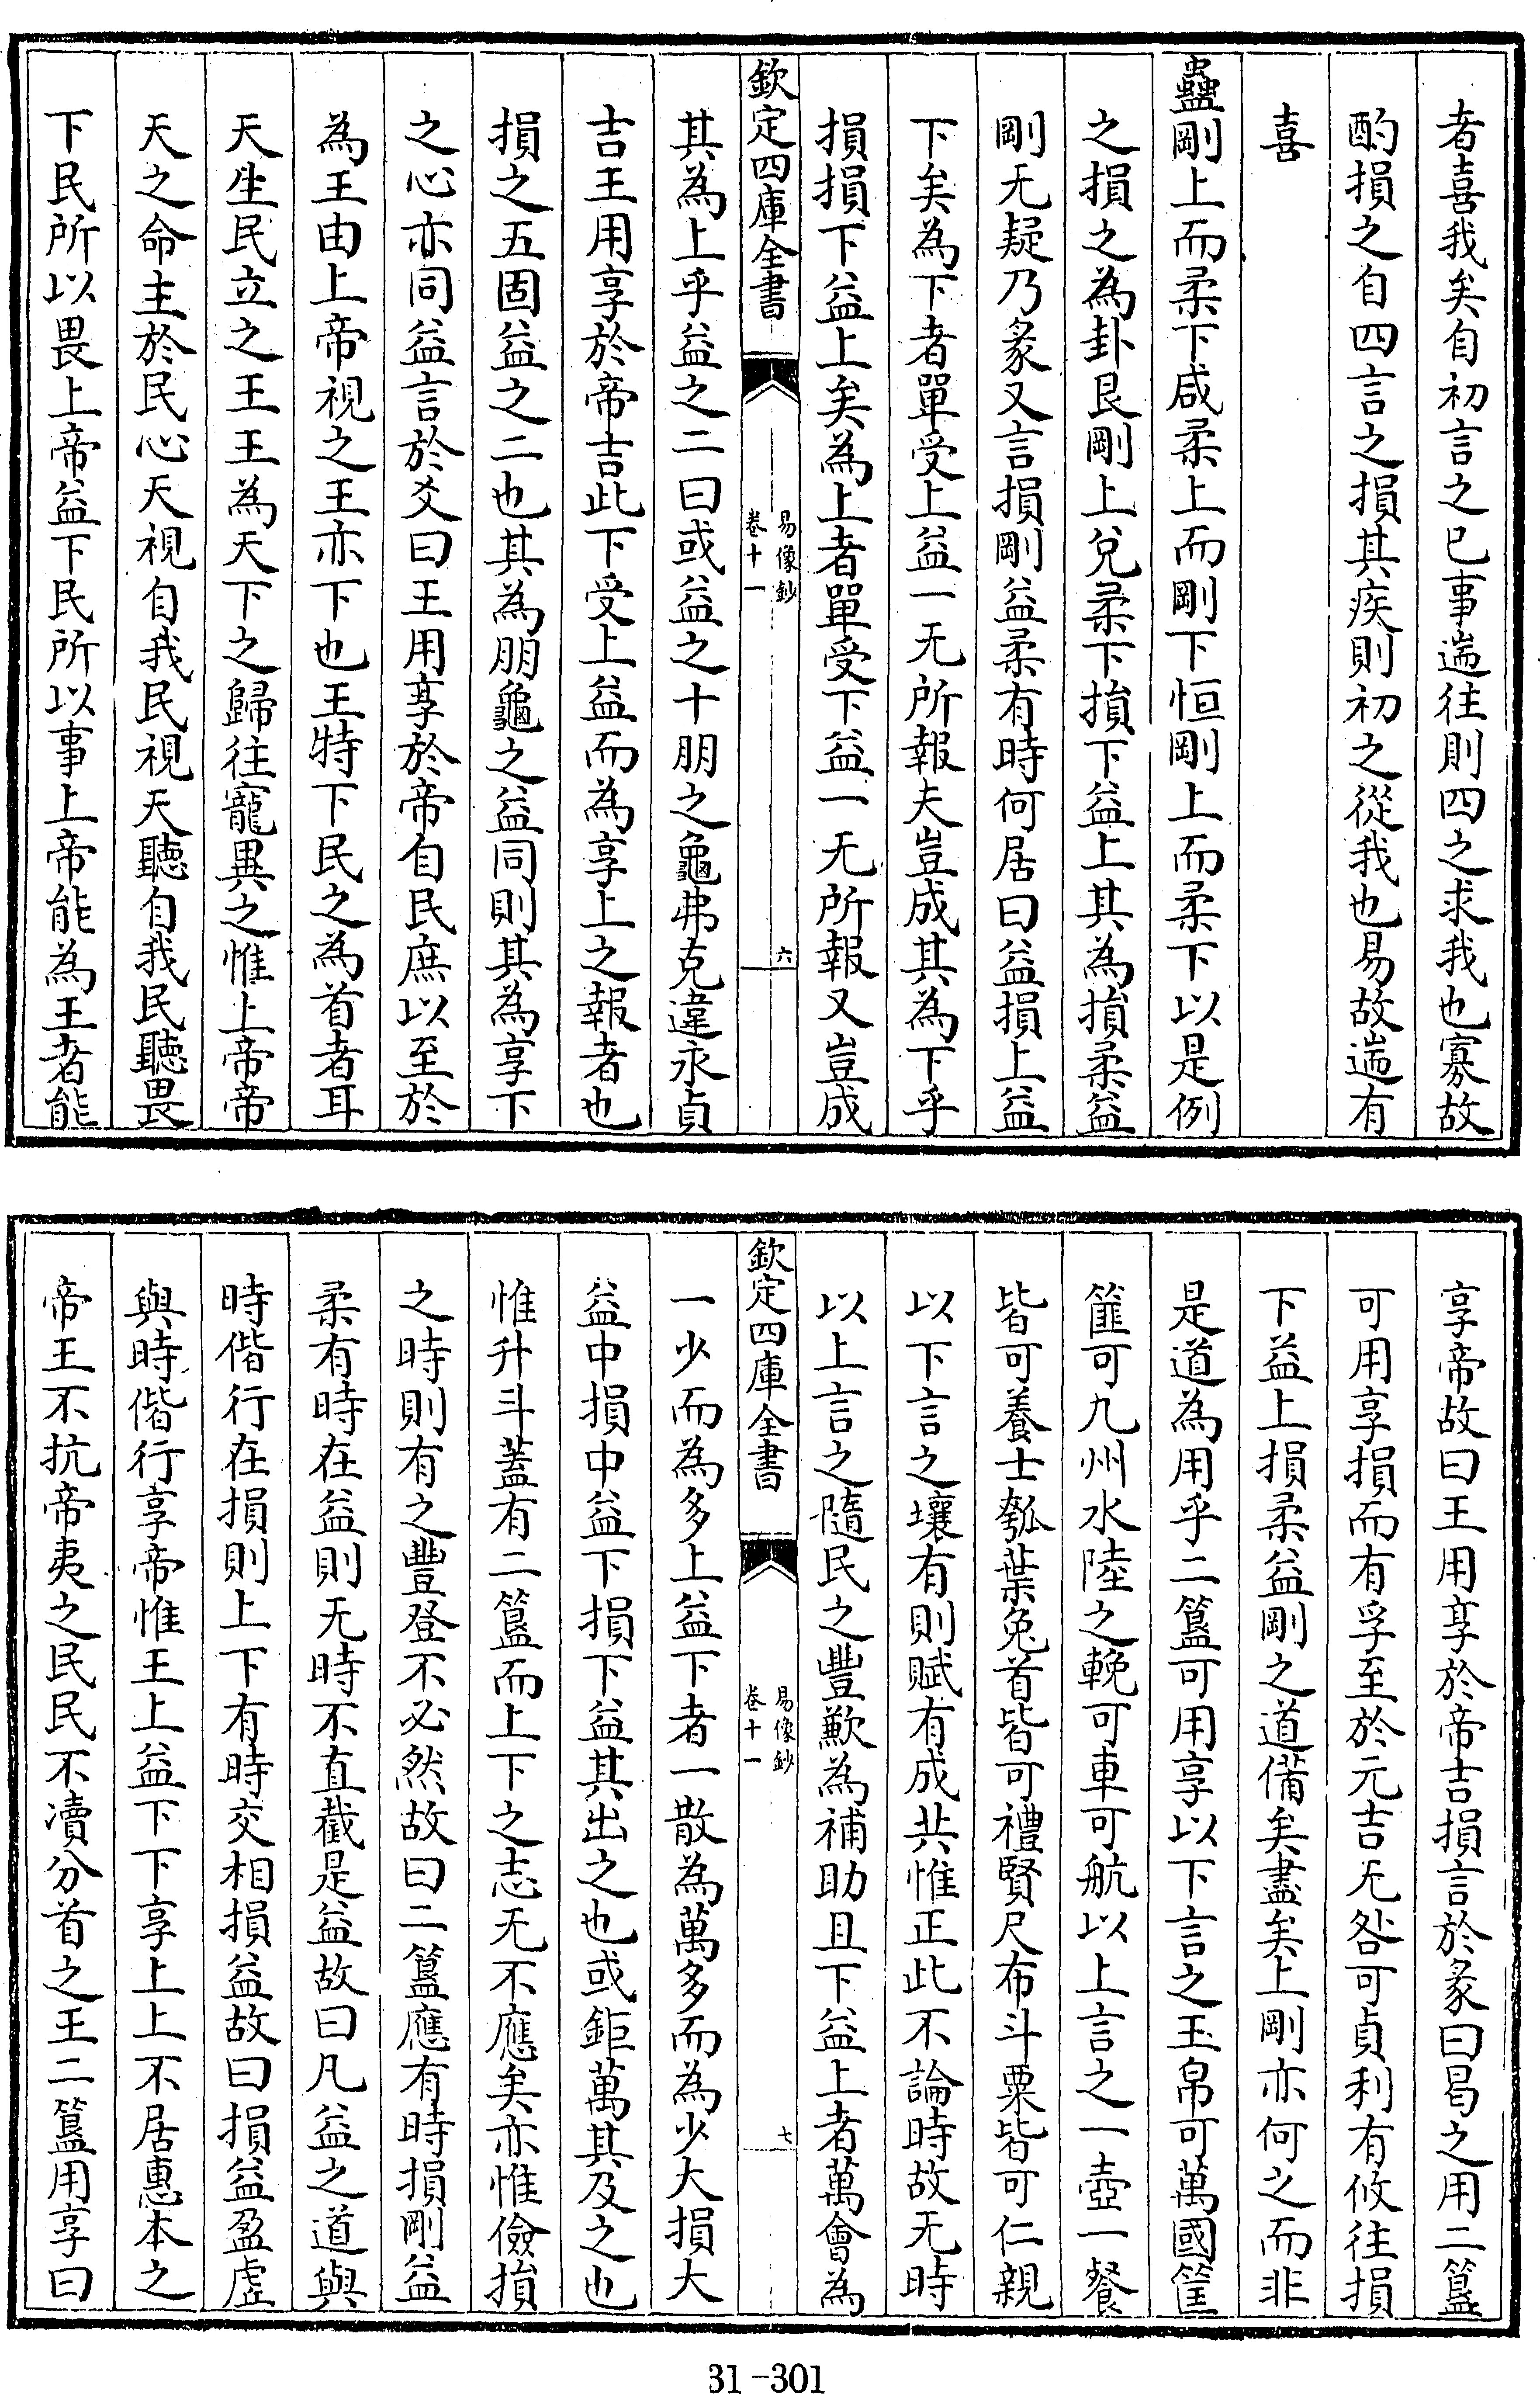 者喜我矣自初言之巳事遄往則四之求我也寡故
酌損之自四言之損其疾則初之從我也易故遄有
喜
蠱剛上而柔下咸柔上而剛下恒剛上而柔下以是例
之損之為卦艮剛上兌柔下損下益上其為損柔益
剛无疑乃彖又言損剛益柔有時何居曰益損上益
下矣為下者單受上益一无所報夫豈成其為下乎
損損下益上矣為上者單受下益一无所報又豈成
欽定四庫全書
易像鈔
卷十一
六
其為上乎益之二曰或益之十朋之龜弗克違永貞
吉王用享於帝吉此下受上益而為享上之報者也
損之五固益之二也其為朋龜之益同則其為享下
之心亦同益言於爻曰王用享於帝自民庶以至於
為王由上帝視之王亦下也王特下民之為首者耳
天生民立之王王為天下之歸往寵異之惟上帝帝
天之命主於民心天視自我民視天聽自我民聽畏
下民所以畏上帝益下民所以事上帝能為王者能
享帝故曰王用享於帝吉損言於彖曰曷之用二簋
可用享損而有孚至於元吉无咎可貞利有攸往損
下益上損柔益剛之道備矣盡矣上剛亦何之而非
是道為用乎二簋可用享以下言之玉帛可萬國筐
篚可九州水陸之輓可車可航以上言之一壺一餐
皆可養士瓠葉兔首皆可禮賢尺布斗粟皆可仁親
以下言之壤有則賦有成共惟正此不論時故无時
以上言之隨民之豐歉為補助且下益上者萬會為
欽定四庫全書
易像鈔
卷十一
七
一少而為多上益下者一散為萬多而為少大損大
益中損中益下損下益其出之也或鉅萬其及之也
惟升斗蓋有二簋而上下之志无不應矣亦惟儉損
之時則有之豐登不必然故曰二簋應有時損剛益
柔有時在益則无時不直截是益故曰凡益之道與
時偕行在損則上下有時交相損益故曰損益盈虛
與時偕行享帝惟王上益下下享上上不居惠本之
帝王不抗帝夷之民民不凟分首之王二簋用享曰
31-301